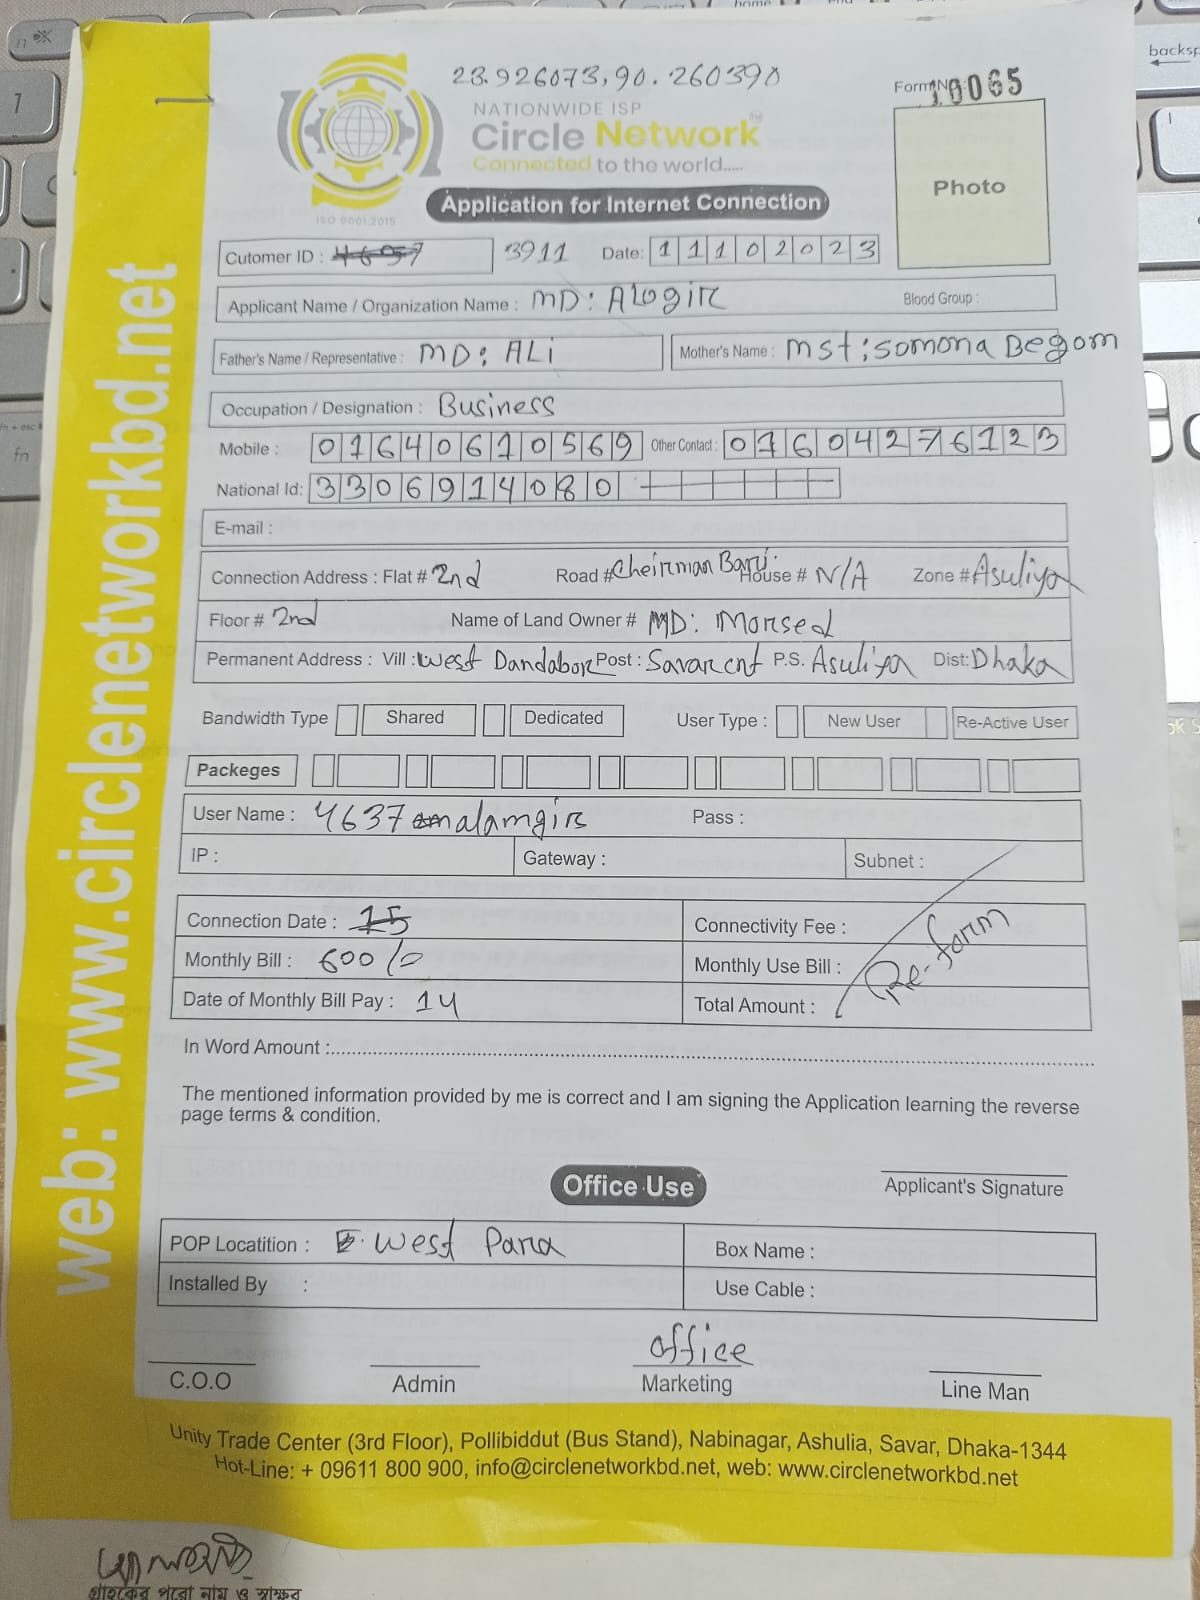 23.926073,90.260390
Form No 10065
NATIONWIDE ISP
Circle Network
Connected to the world.....
ISO 9001:2015
Application for Internet Connection
Photo
Cutomer ID : 3911 Date: 11102023
Applicant Name / Organization Name : MD: Alogir Blood Group :
Father's Name / Representative : MD: ALi Mother's Name : mst: Somona Begom
Occupation / Designation : Business
Mobile : 01640610569 Other Contact : 01604276123
National Id: 3306914080
E-mail :
Connection Address : Flat # 2nd Road # Cheirman Bari House # N/A Zone # Asuliya
Floor # 2nd Name of Land Owner # MD: Morsed
Permanent Address : Vill : West Dandabor Post : Savar cnt P.S. Asuliya Dist: Dhaka
Bandwidth Type Shared Dedicated User Type : New User Re-Active User
Packeges
User Name : 4637 malamgir Pass :
IP : Gateway : Subnet :
Connection Date : 15 Connectivity Fee :
Monthly Bill : 600/= Monthly Use Bill :
Date of Monthly Bill Pay : 14 Total Amount :
Re-form
In Word Amount :
The mentioned information provided by me is correct and I am signing the Application learning the reverse
page terms & condition.
Applicant's Signature
Office Use
POP Locatition : West Para Box Name :
Installed By : Use Cable :
office
C.O.O Admin Marketing Line Man
Unity Trade Center (3rd Floor), Pollibiddut (Bus Stand), Nabinagar, Ashulia, Savar, Dhaka-1344
Hot-Line: + 09611 800 900, info@circlenetworkbd.net, web: www.circlenetworkbd.net
web: www.circlenetworkbd.net
গ্রাহকের পুরো নাম ও স্বাক্ষর
backsp
fn